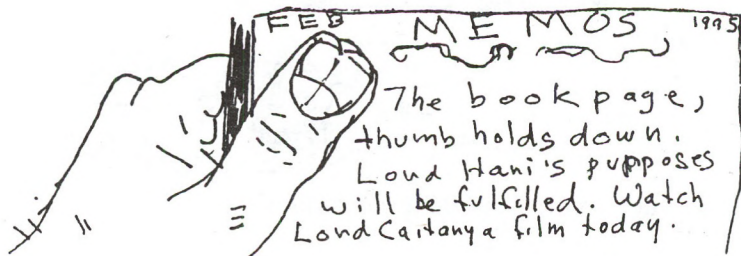 FEB MEMOS 1995
The book page,
thumb holds down.
Lord Hari's purposes
will be fulfilled. Watch
Lord Caitanya film today.